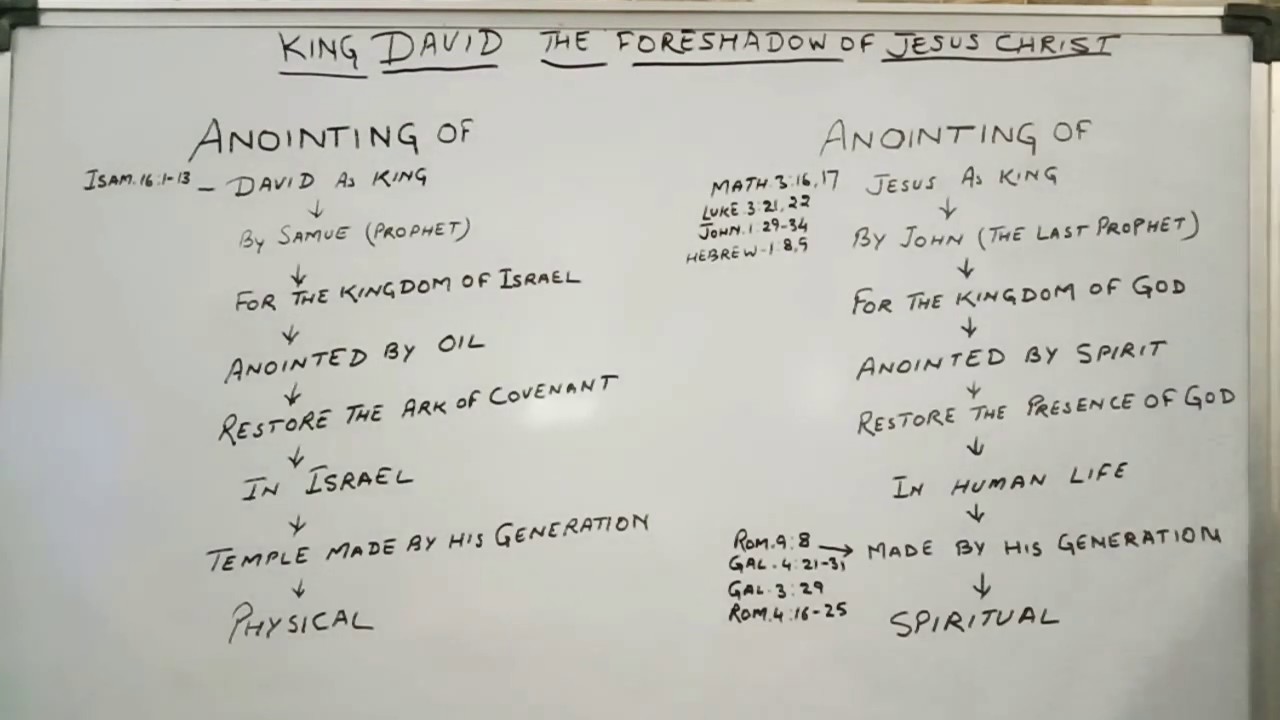 KING DAVID THE FORESHADOW OF JESUS CHRIST
ANOINTING OF
ISAM.16:1-13 – DAVID AS KING
↓
BY SAMUE (PROPHET)
↓
FOR THE KINGDOM OF ISRAEL
↓
ANOINTED BY OIL
↓
RESTORE THE ARK OF COVENANT
↓
IN ISRAEL
↓
TEMPLE MADE BY HIS GENERATION
↓
PHYSICAL
ANOINTING OF
MATH.3:16,17 JESUS AS KING
LUKE.3:21,22
↓
JOHN.1:29-34
BY JOHN (THE LAST PROPHET)
HEBREW-1:8,9
↓
FOR THE KINGDOM OF GOD
↓
ANOINTED BY SPIRIT
↓
RESTORE THE PRESENCE OF GOD
↓
IN HUMAN LIFE
↓
ROM.9:8 → MADE BY HIS GENERATION
GAL.4:21-31
↓
GAL.3:29
ROM.4:16-25
SPIRITUAL